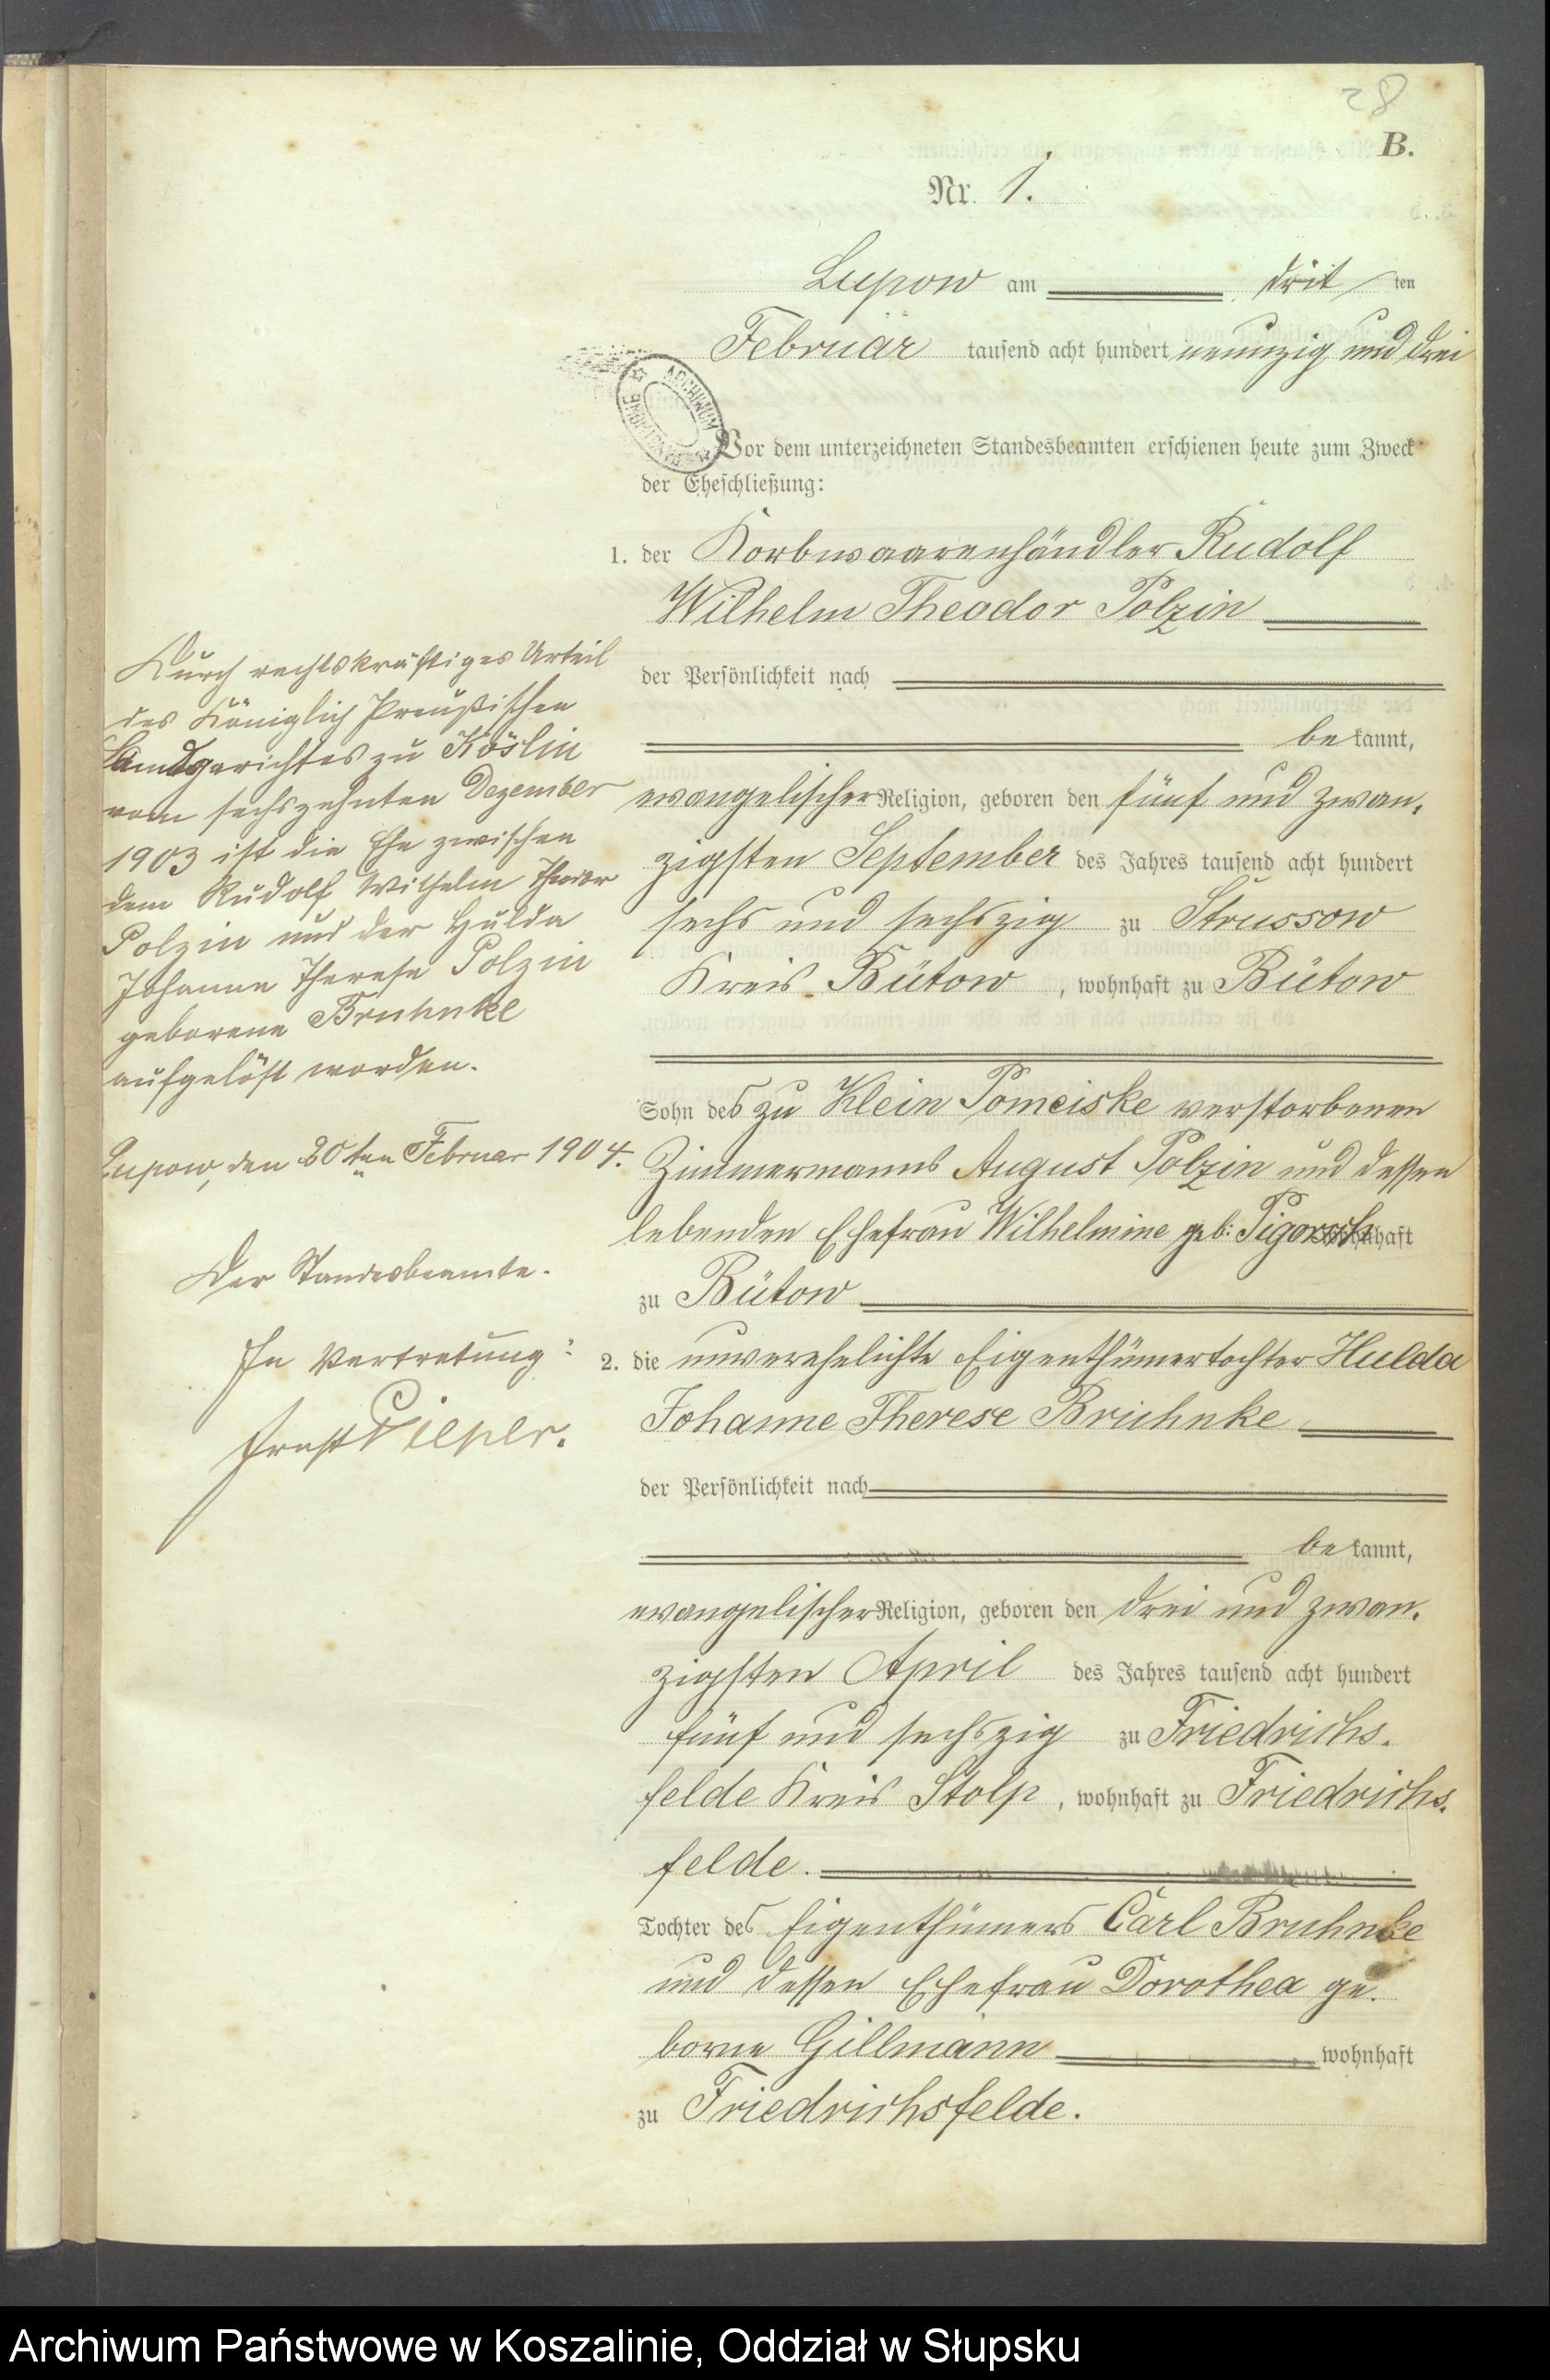 28
B.
Nr. 1.
Lupow am drit ten
Februar tausend acht hundert neunzig und drei
ARCHIWUM
Vor dem unterzeichneten Standesbeamten erschienen heute zum Zweck
der Eheschließung:
1. der Korbwaarenhändler Rudolf
Wilhelm Theodor Polzin
der Persönlichkeit nach
be kannt,
evangelischer Religion, geboren den fünf und zwan-
zigsten September des Jahres tausend acht hundert
sechs und sechszig zu Strussow
Kreis Bütow, wohnhaft zu Bütow
Sohn des zu Klein Pomeiske verstorbenen
Zimmermanns August Polzin und dessen
lebenden Ehefrau Wilhelmine geb: Pigorsch wohnhaft
zu Bütow
2. die unverehelichte Eigenthümertochter Hulda
Johanne Therese Bruhnke
der Persönlichkeit nach
be kannt,
evangelischer Religion, geboren den drei und zwan-
zigsten April des Jahres tausend acht hundert
fünf und sechszig zu Friedrichs-
felde Kreis Stolp, wohnhaft zu Friedrichs-
felde.
Tochter des Eigenthümers Carl Bruhnke
und dessen Ehefrau Dorothea ge-
borne Gillmann wohnhaft
zu Friedrichsfelde.
Durch rechtskräftiges Urteil
des Königlich Preußischen
Landgerichtes zu Köslin
vom sechszehnten Dezember
1903 ist die Ehe zwischen
dem Rudolf Wilhelm Theodor
Polzin und der Hulda
Johanne Therese Polzin
geborene Bruhnke
aufgelöst worden.
Lupow, den 20ten Februar 1904.
Der Standesbeamte.
In Vertretung:
Ernst Pieper.
Archiwum Państwowe w Koszalinie, Oddział w Słupsku